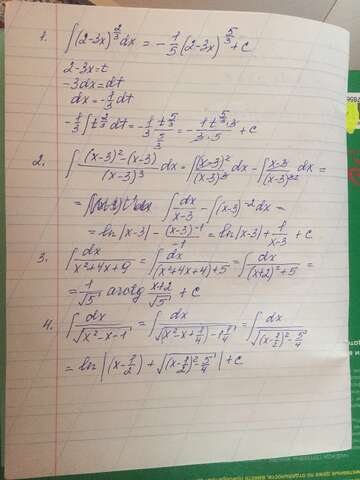 1. ∫(2-3x)^(2/3) dx = -1/5 (2-3x)^(5/3) + C
2-3x=t
-3dx=dt
dx=-1/3 dt
-1/3 ∫t^(2/3) dt = -1/3 t^(5/3)/(5/3) = -1·t^(5/3)·3/(3·5) + C
2. ∫ ((x-3)²-(x-3))/(x-3)³ dx = ∫ (x-3)²/(x-3)³ dx - ∫ (x-3)/(x-3)³² dx =
= ∫ dx/(x-3) - ∫(x-3)^(-2) dx =
= ln|x-3| - (x-3)^(-1)/(-1) = ln|x-3| + 1/(x-3) + C
3. ∫ dx/(x²+4x+9) = ∫ dx/((x²+4x+4)+5) = ∫ dx/((x+2)²+5) =
= 1/√5 arctg (x+2)/√5 + C
4. ∫ dx/√(x²-x-1) = ∫ dx/√((x²-x+1/4)-1 1/4) = ∫ dx/√((x-1/2)²-5/4)
= ln|(x-1/2) + √((x-1/2)²-5/4)| + C